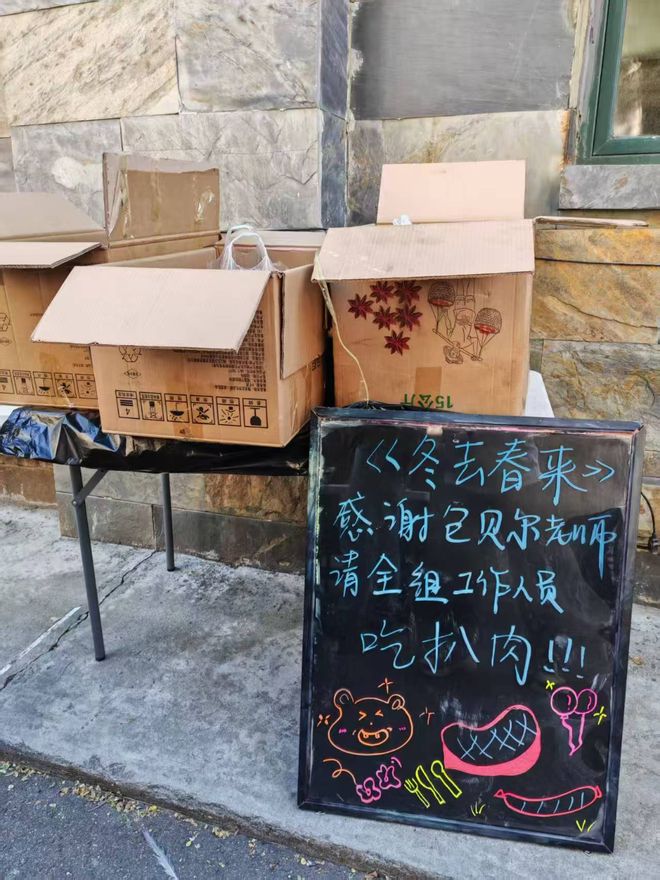 15公斤
《冬去春来》
感谢包贝尔老师
请全组工作人员
吃扒肉!!!